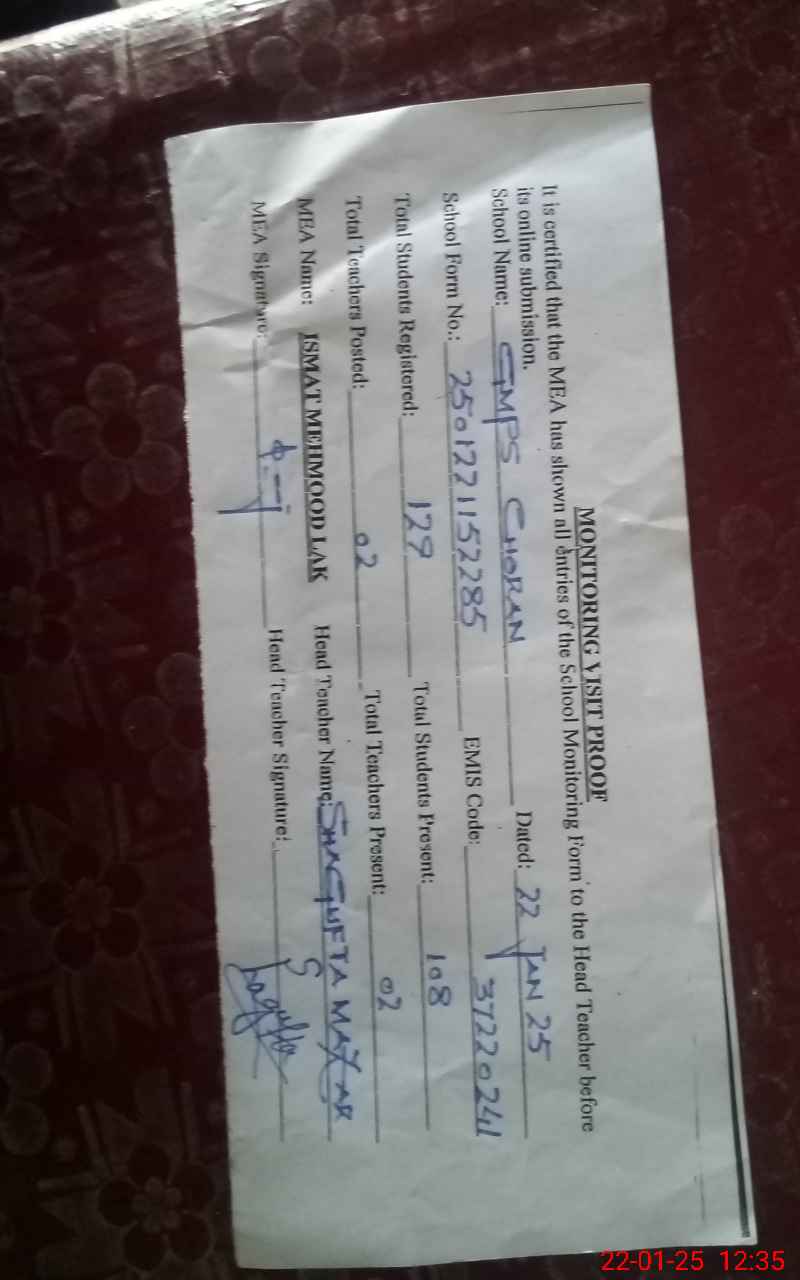 MONITORING VISIT PROOF
It is certified that the MEA has shown all entries of the School Monitoring Form to the Head Teacher before
its online submission.
School Name: GMPS CHORAN Dated: 22 JAN 25
School Form No.: 2501221152285 EMIS Code: 37220241
Total Students Registered: 129 Total Students Present: 108
Total Teachers Posted: 02 Total Teachers Present: 02
MEA Name: ISMAT MEHMOOD LAK Head Teacher Name: SHAGUFTA
MEA Signature: Head Teacher Signature: Shagufta
22-01-25 12:35